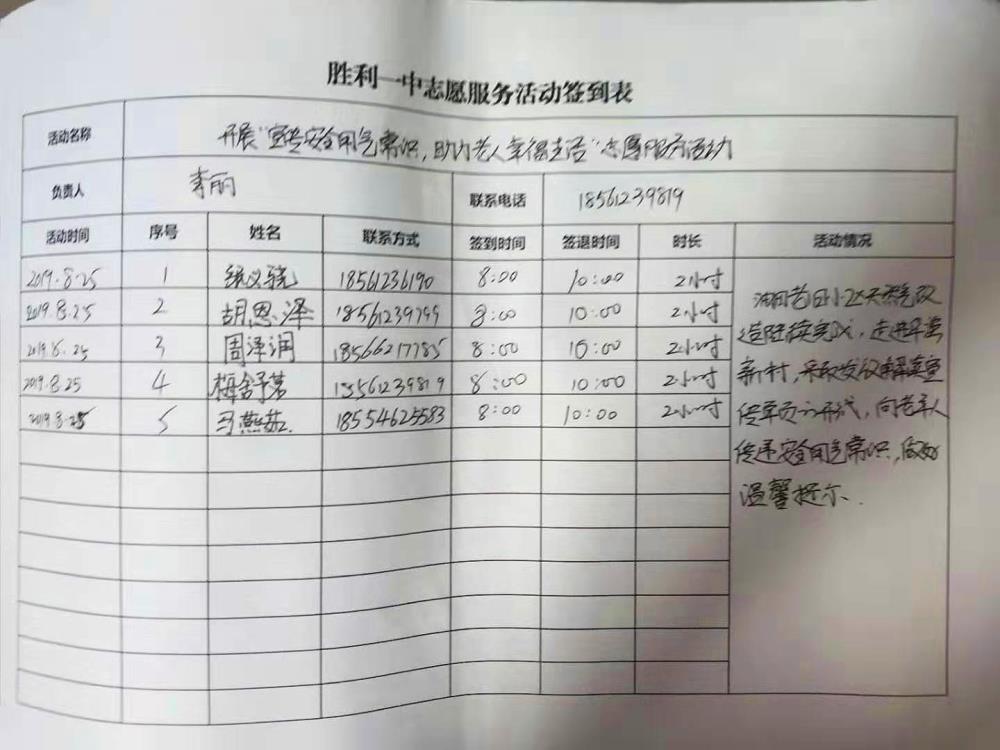 胜利一中志愿服务活动签到表
活动名称 开展“宣传安全用气常识，助力老人幸福生活”志愿服务活动
负责人 李丽 联系电话 18561239819
活动时间 序号 姓名 联系方式 签到时间 签退时间 时长 活动情况
2019.8.25 1 18561236190 8:00 10:00 2小时
2019.8.25 2 胡恩泽 18561239799 8:00 10:00 2小时
2019.8.25 3 周泽润 18566217785 8:00 10:00 2小时
2019.8.25 4 梅舒蕾 18561239819 8:00 10:00 2小时
2019.8.25 5 马燕茹 18554625583 8:00 10:00 2小时
油田老旧小区天然气改
造陆续完成，走进
新村，采取发放解读宣
传单页的形式，向老年人
传递安全用气常识，做好
温馨提示.